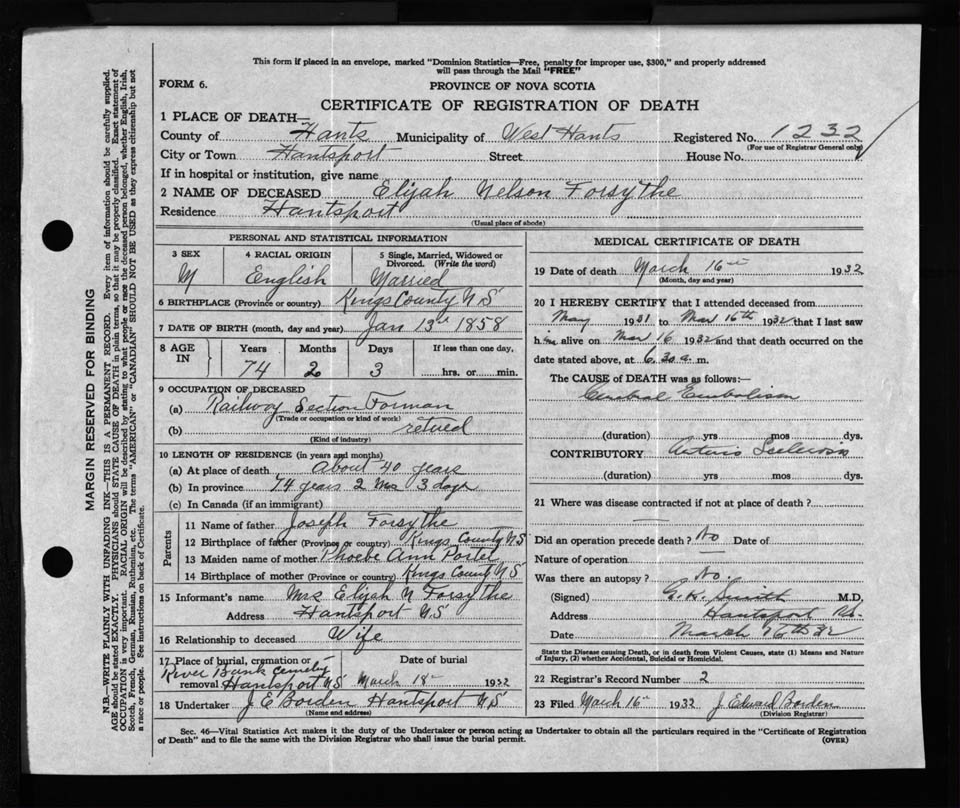 This form if placed in an envelope, marked "Dominion Statistics—Free, penalty for improper use, $300," and properly addressed
will pass through the Mail "FREE"
FORM 6.
PROVINCE OF NOVA SCOTIA
CERTIFICATE OF REGISTRATION OF DEATH
1 PLACE OF DEATH—
County of Hants Municipality of West Hants Registered No. 1232
(For use of Registrar General only)
City or Town Hantsport Street House No.
If in hospital or institution, give name
2 NAME OF DECEASED Elijah Nelson Forsythe
Residence Hantsport
(Usual place of abode)
PERSONAL AND STATISTICAL INFORMATION
3 SEX 4 RACIAL ORIGIN 5 Single, Married, Widowed or
Divorced. (Write the word)
M English Married
6 BIRTHPLACE (Province or country) Kings County N S
7 DATE OF BIRTH (month, day and year) Jan 13th 1858
8 AGE IN Years Months Days If less than one day,
74 2 3 hrs. or min.
9 OCCUPATION OF DECEASED
(a) Railway Section Forman
(Trade or occupation or kind of work)
(b) retired
(Kind of industry)
10 LENGTH OF RESIDENCE (in years and months)
(a) At place of death About 40 years
(b) In province 74 years 2 Mos 3 days
(c) In Canada (if an immigrant)
Parents
11 Name of father Joseph Forsythe
12 Birthplace of father (Province or country) Kings County N S
13 Maiden name of mother Phoebe Ann Porter
14 Birthplace of mother (Province or country) Kings County N S
15 Informant's name Mrs Elijah N Forsythe
Address Hantsport N.S
16 Relationship to deceased Wife
17 Place of burial, cremation or Date of burial
River Bank Cemetery
removal Hantsport N S March 18th 1932
18 Undertaker J E Borden Hantsport N S
(Name and address)
MEDICAL CERTIFICATE OF DEATH
19 Date of death March 16th 1932
(Month, day and year)
20 I HEREBY CERTIFY that I attended deceased from
May 1931 to Mar 16th 1932 that I last saw
him alive on Mar 16 1932 and that death occurred on the
date stated above, at 6.30 a. m.
The CAUSE of DEATH was as follows:—
Cerebral Embolism
(duration) yrs mos dys.
CONTRIBUTORY Arterio Sclerosis
(duration) yrs. mos. dys.
21 Where was disease contracted if not at place of death?
Did an operation precede death? No Date of
Nature of operation
Was there an autopsy? No.
(Signed) Smith M.D,
Address Hantsport N.S.
Date March 16th 32
State the Disease causing Death, or in death from Violent Causes, state (1) Means and Nature
of Injury, (2) whether Accidental, Suicidal or Homicidal.
22 Registrar's Record Number 2
23 Filed March 16th 1932 J. Edward Borden
(Division Registrar)
Sec. 46—Vital Statistics Act makes it the duty of the Undertaker or person acting as Undertaker to obtain all the particulars required in the "Certificate of Registration
of Death" and to file the same with the Division Registrar who shall issue the burial permit. (OVER)
MARGIN RESERVED FOR BINDING
N.B.—WRITE PLAINLY WITH UNFADING INK—THIS IS A PERMANENT RECORD. Every item of information should be carefully supplied.
AGE should be stated EXACTLY. PHYSICIANS should STATE CAUSE OF DEATH in plain terms, so that it may be properly classified. Exact statement of
OCCUPATION is very important. RACIAL ORIGIN will be described by stating to what people or race the deceased person belonged, whether English, Irish,
Scotch, French, German, Russian, Ruthenian, etc. The terms "AMERICAN" or "CANADIAN" SHOULD NOT BE USED as they express citizenship but not
a race or people. See instructions on back of Certificate.